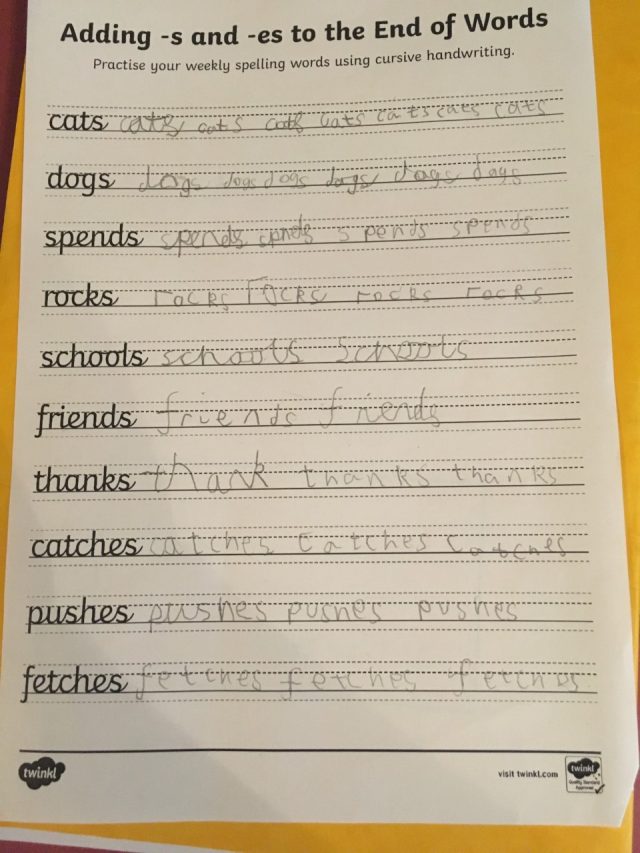 Adding -s and -es to the End of Words
Practise your weekly spelling words using cursive handwriting.
cats cats cats cats cats cats cats cats
dogs dogs dogs dogs dogs dogs dogs
spends spends spends spends spends
rocks rocks rocks rocks rocks
schools schools schools
friends friends friends
thanks thank thanks thanks
catches catches catches catches
pushes pushes pushes pushes
fetches fetches fetches fetches
twinkl visit twinkl.com twinkl
Quality Standard
Approved